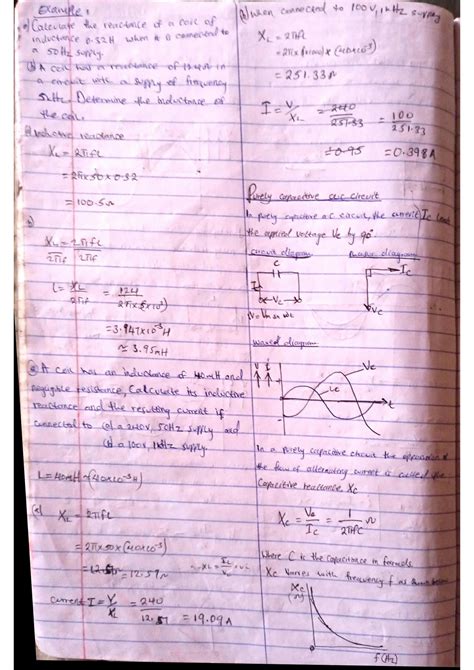 Example:
a) Calculate the reactance of a coil of
inductance 0.32H when it is connected to
a 50Hz supply.
(b) A coil has a reactance of 124Ω in
a circuit with a supply of frequency
5kHz. Determine the inductance of
the coil.
a) Inductive reactance
XL = 2πfL
= 2π×50×0.32
= 100.5Ω
b)
XL = 2πfL
2πf 2πf
L = XL/2πf = 124/2π×(5×10³)
= 3.947×10⁻³H
≈ 3.95mH
② A coil has an inductance of 40mH and
negligible resistance, Calculate its inductive
reactance and the resulting current if
connected to (a) a 240V, 50Hz supply and
(b) a 100V, 1kHz supply.
L = 40mH = (40×10⁻³H)
(a) XL = 2πfL
= 2π×50×(40×10⁻³)
= 12.57Ω
Current I = V/XL = 240/12.57 = 19.09A
(b) When connected to 100V, 1kHz supply
XL = 2πfL
= 2π×1000×(40×10⁻³)
= 251.33Ω
I = V/XL = 240/251.33 = 100/251.33
=0.95 = 0.398A
Purely capacitive a.c circuit
In purely capacitive a.c circuit, the current Ic leads
the applied voltage Vc by 90°
circuit diagram phasor diagram
C
Ic
Vc
V = Vm sin wt
Ic
Vc
waved diagram
V i
Vc
ic
t
In a purely capacitive circuit the opposition to
the flow of alternating current is called the
Capacitive reactance, Xc
Xc = Vc/Ic = 1/2πfC Ω
where C is the capacitance in farads.
Xc varies with frequency f as shown below
Xc
(Ω)
0
f(Hz)